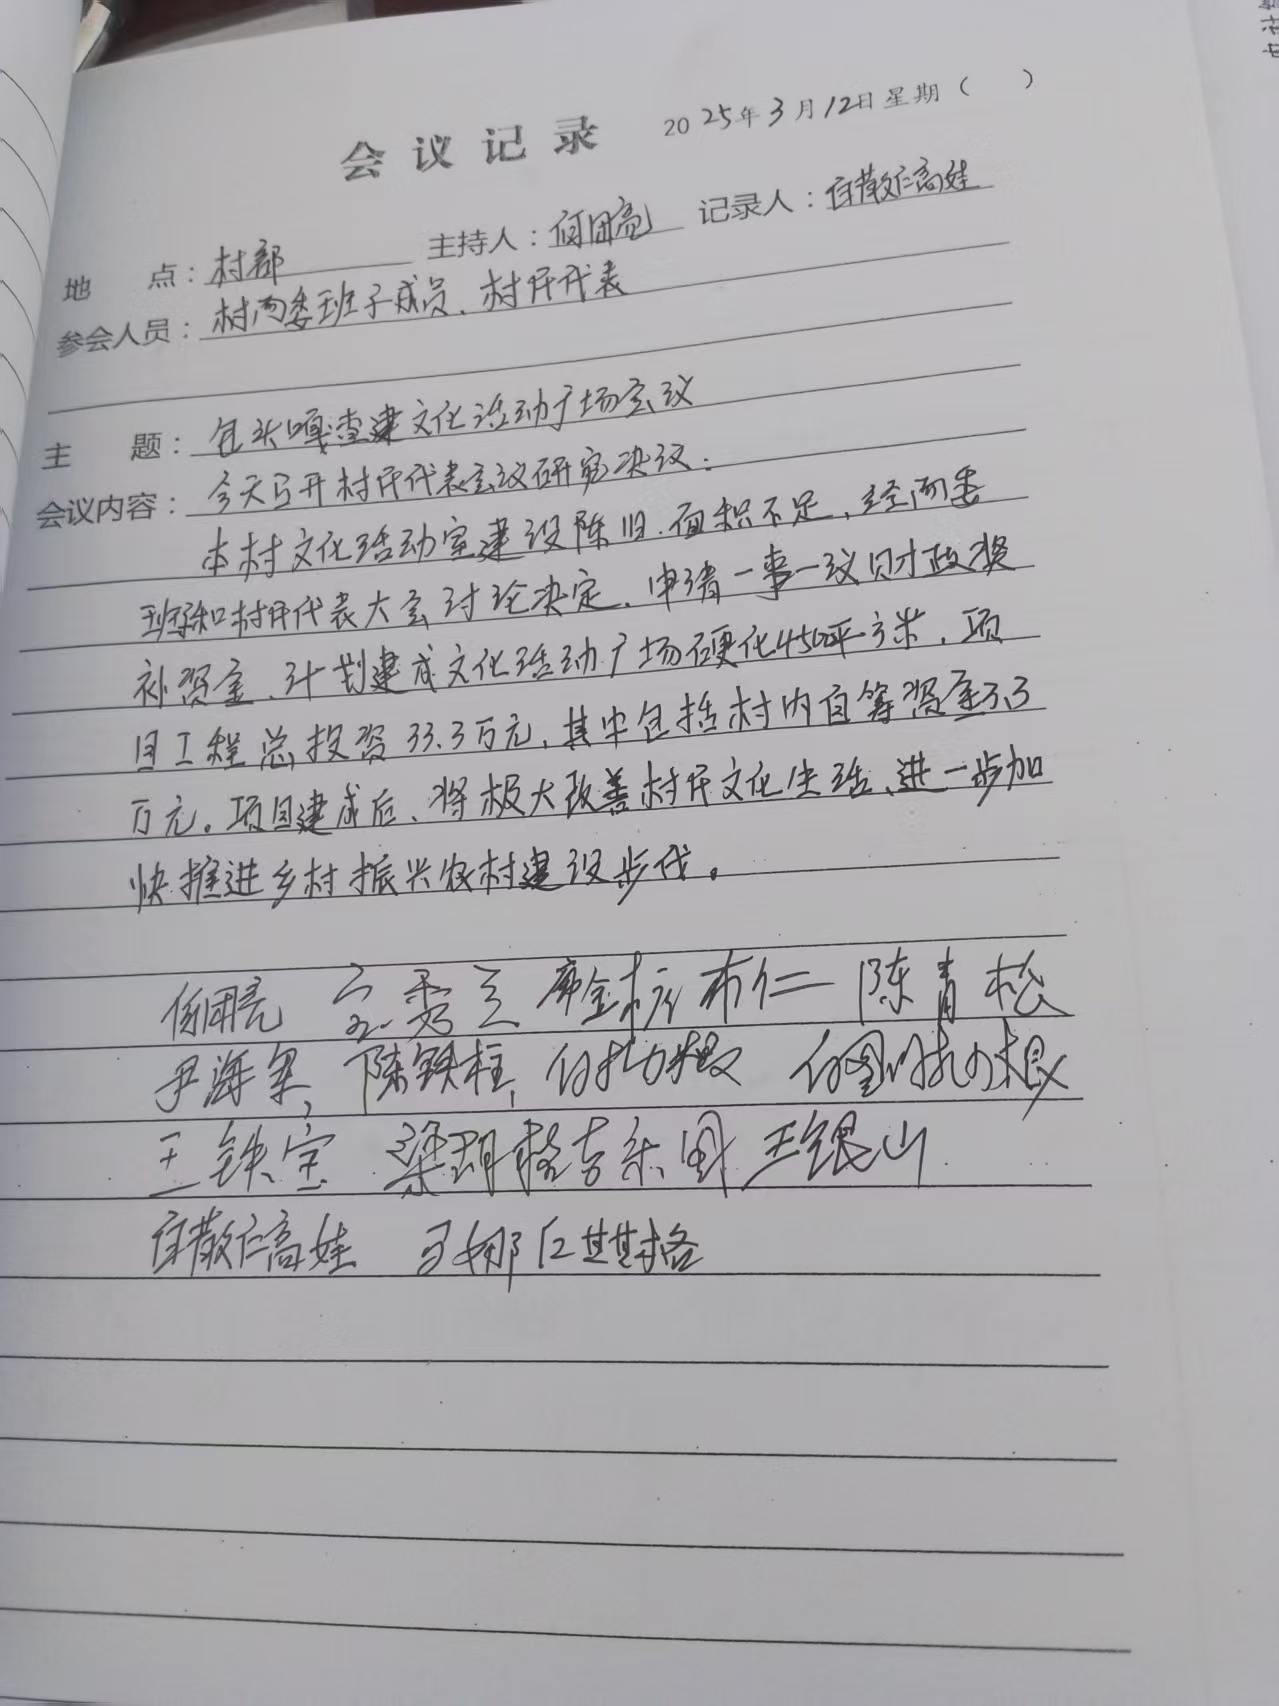 会议记录 2025年3月12日 星期（ ）
地 点：村部 主持人：何团亮 记录人：白散仁高娃
参会人员：村两委班子成员、村民代表
主 题：包头嘎查建文化活动广场会议
会议内容：今天召开村民代表会议研究决议：
本村文化活动室建设陈旧、面积不足，经两委
班子和村民代表大会讨论决定，申请一事一议财政奖
补资金、计划建成文化活动广场硬化4500平方米，项
目工程总投资33.3万元，其中包括村内自筹资金3.3
万元。项目建成后、将极大改善村民文化生活、进一步加
快推进乡村振兴农村建设步伐。
何团亮 布仁 陈青松
尹海 陈铁柱
王铁宝 梁 王银山
白散仁高娃 其其格